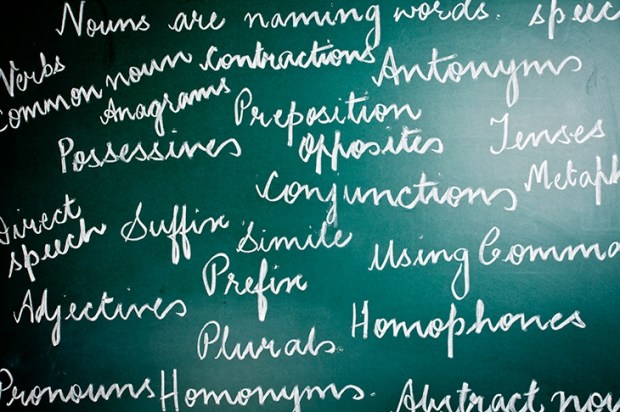 Nouns are naming words. speec
Verbs
Common noun contractions Antonyms
Anagrams Preposition
Possessives Opposites Tenses
Conjunctions Metaph
Direct speech Suffix Simile Using Comma
Prefix
Adjectives Homophones
Plurals
Pronouns Homonyms. Abstract nou